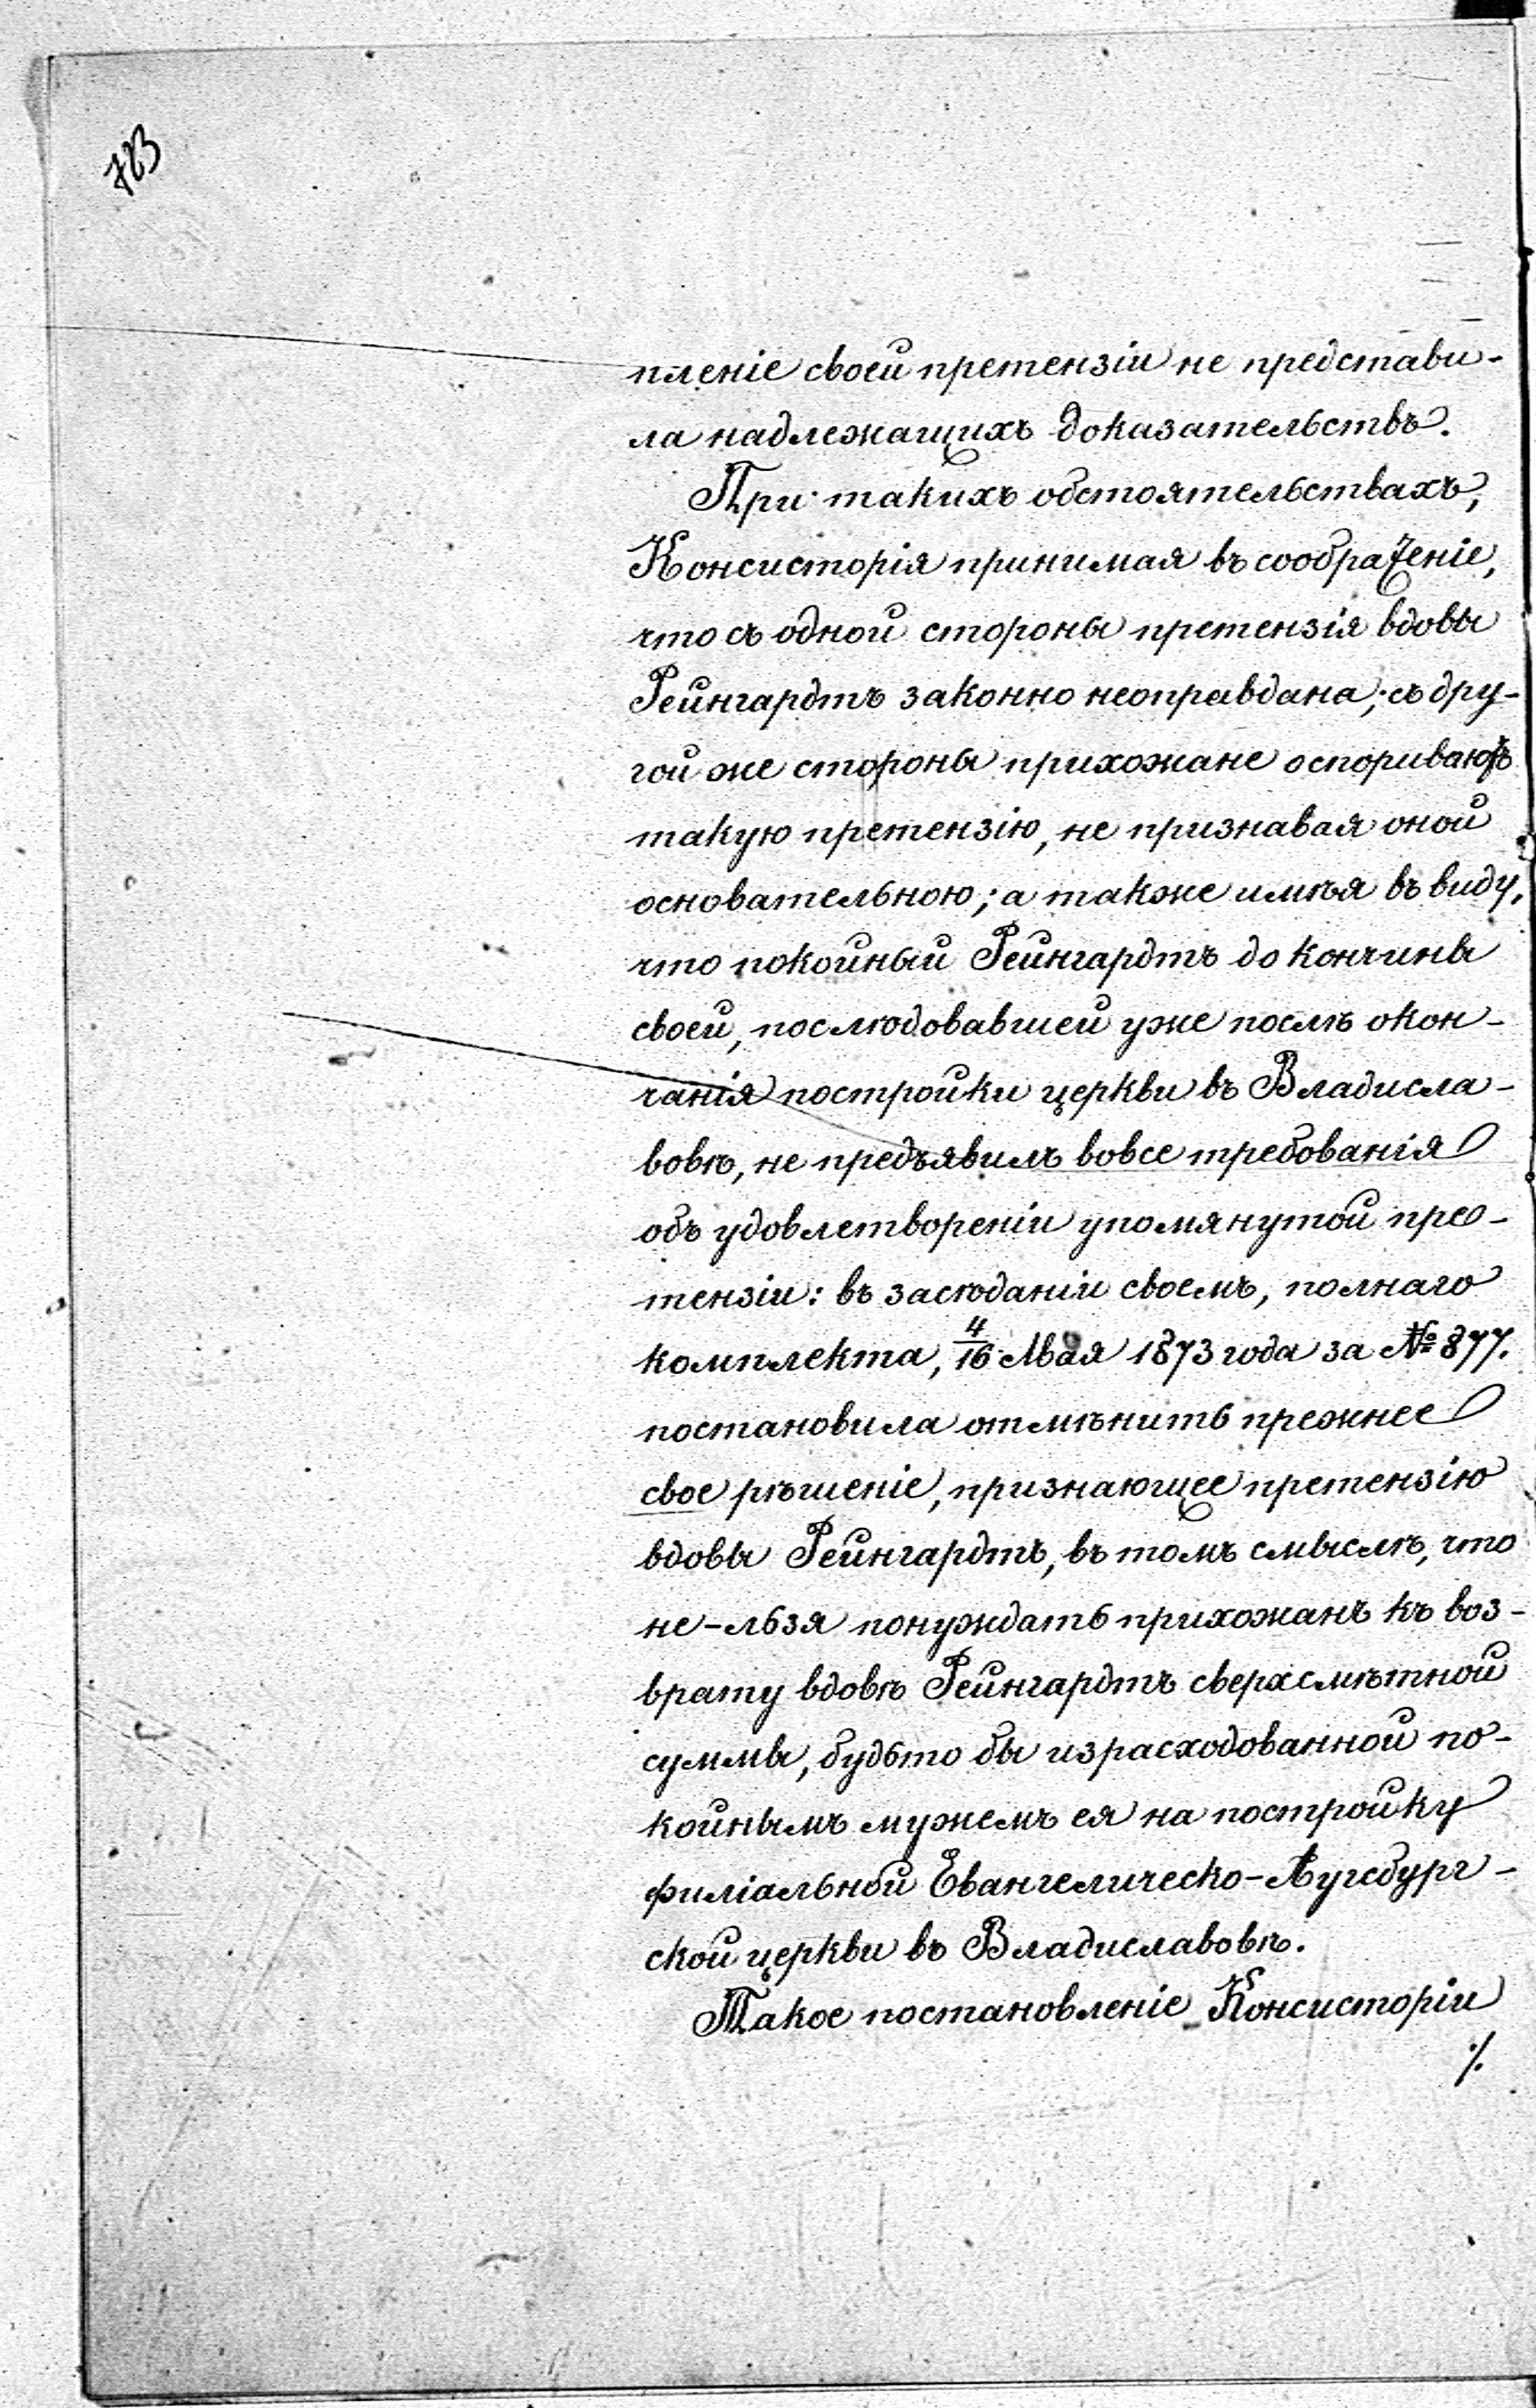 783
пленіе своей претензіи не представи-
ла надлежащихъ доказательствъ.
При такихъ обстоятельствахъ,
Консисторія принимая въ соображеніе,
что съ одной стороны претензія вдовы
Рейнгардтъ законно неоправдана; съ дру-
гой же стороны прихожане оспориваютъ
такую претензію, не признавая оной
основательною; а также имѣя въ виду,
что покойный Рейнгардтъ до кончины
своей, послѣдовавшей уже послѣ окон-
чанія постройки церкви въ Владисла-
вовѣ, не предъявилъ вовсе требованія
объ удовлетвореніи упомянутой пре-
тензіи: въ засѣданіи своемъ, полнаго
комплекта, 4/16 Мая 1873 года за № 877.
постановила отмѣнить прежнее
свое рѣшеніе, признающее претензію
вдовы Рейнгардтъ, въ томъ смыслѣ, что
не-льзя понуждать прихожанъ къ воз-
врату вдовѣ Рейнгардтъ сверхсмѣтной
суммы, будьто бы израсходованной по-
койнымъ мужемъ ея на постройку
филіальной Евангелическо-Аугсбург-
ской церкви въ Владиславовѣ.
Такое постановленіе Консисторіи
./.